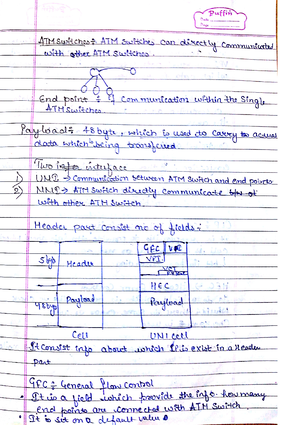 Puffin
Date
Page
ATM Switches : ATM Switches can directly communicated
with other ATM Switches.
End point : Communication within the Single
ATM Switches
Payload : 48 byte, which is used to carry to actual
data which being transfered.
Two interface
1) UNI → Communication between ATM Switch and end points
2) NNI → ATM Switch directly communicate
with other ATM Switch.
Header part consist no of fields :
GFC VPI
5 byte Header VPI
VCI
HEC
48 byte Payload Payload
Cell UNI cell
It consist info about which is exist in a Header
part
GFC : General flow control
• It is a field which provide the info how many
end points are connected with ATM Switch.
• It is set on a default value 0